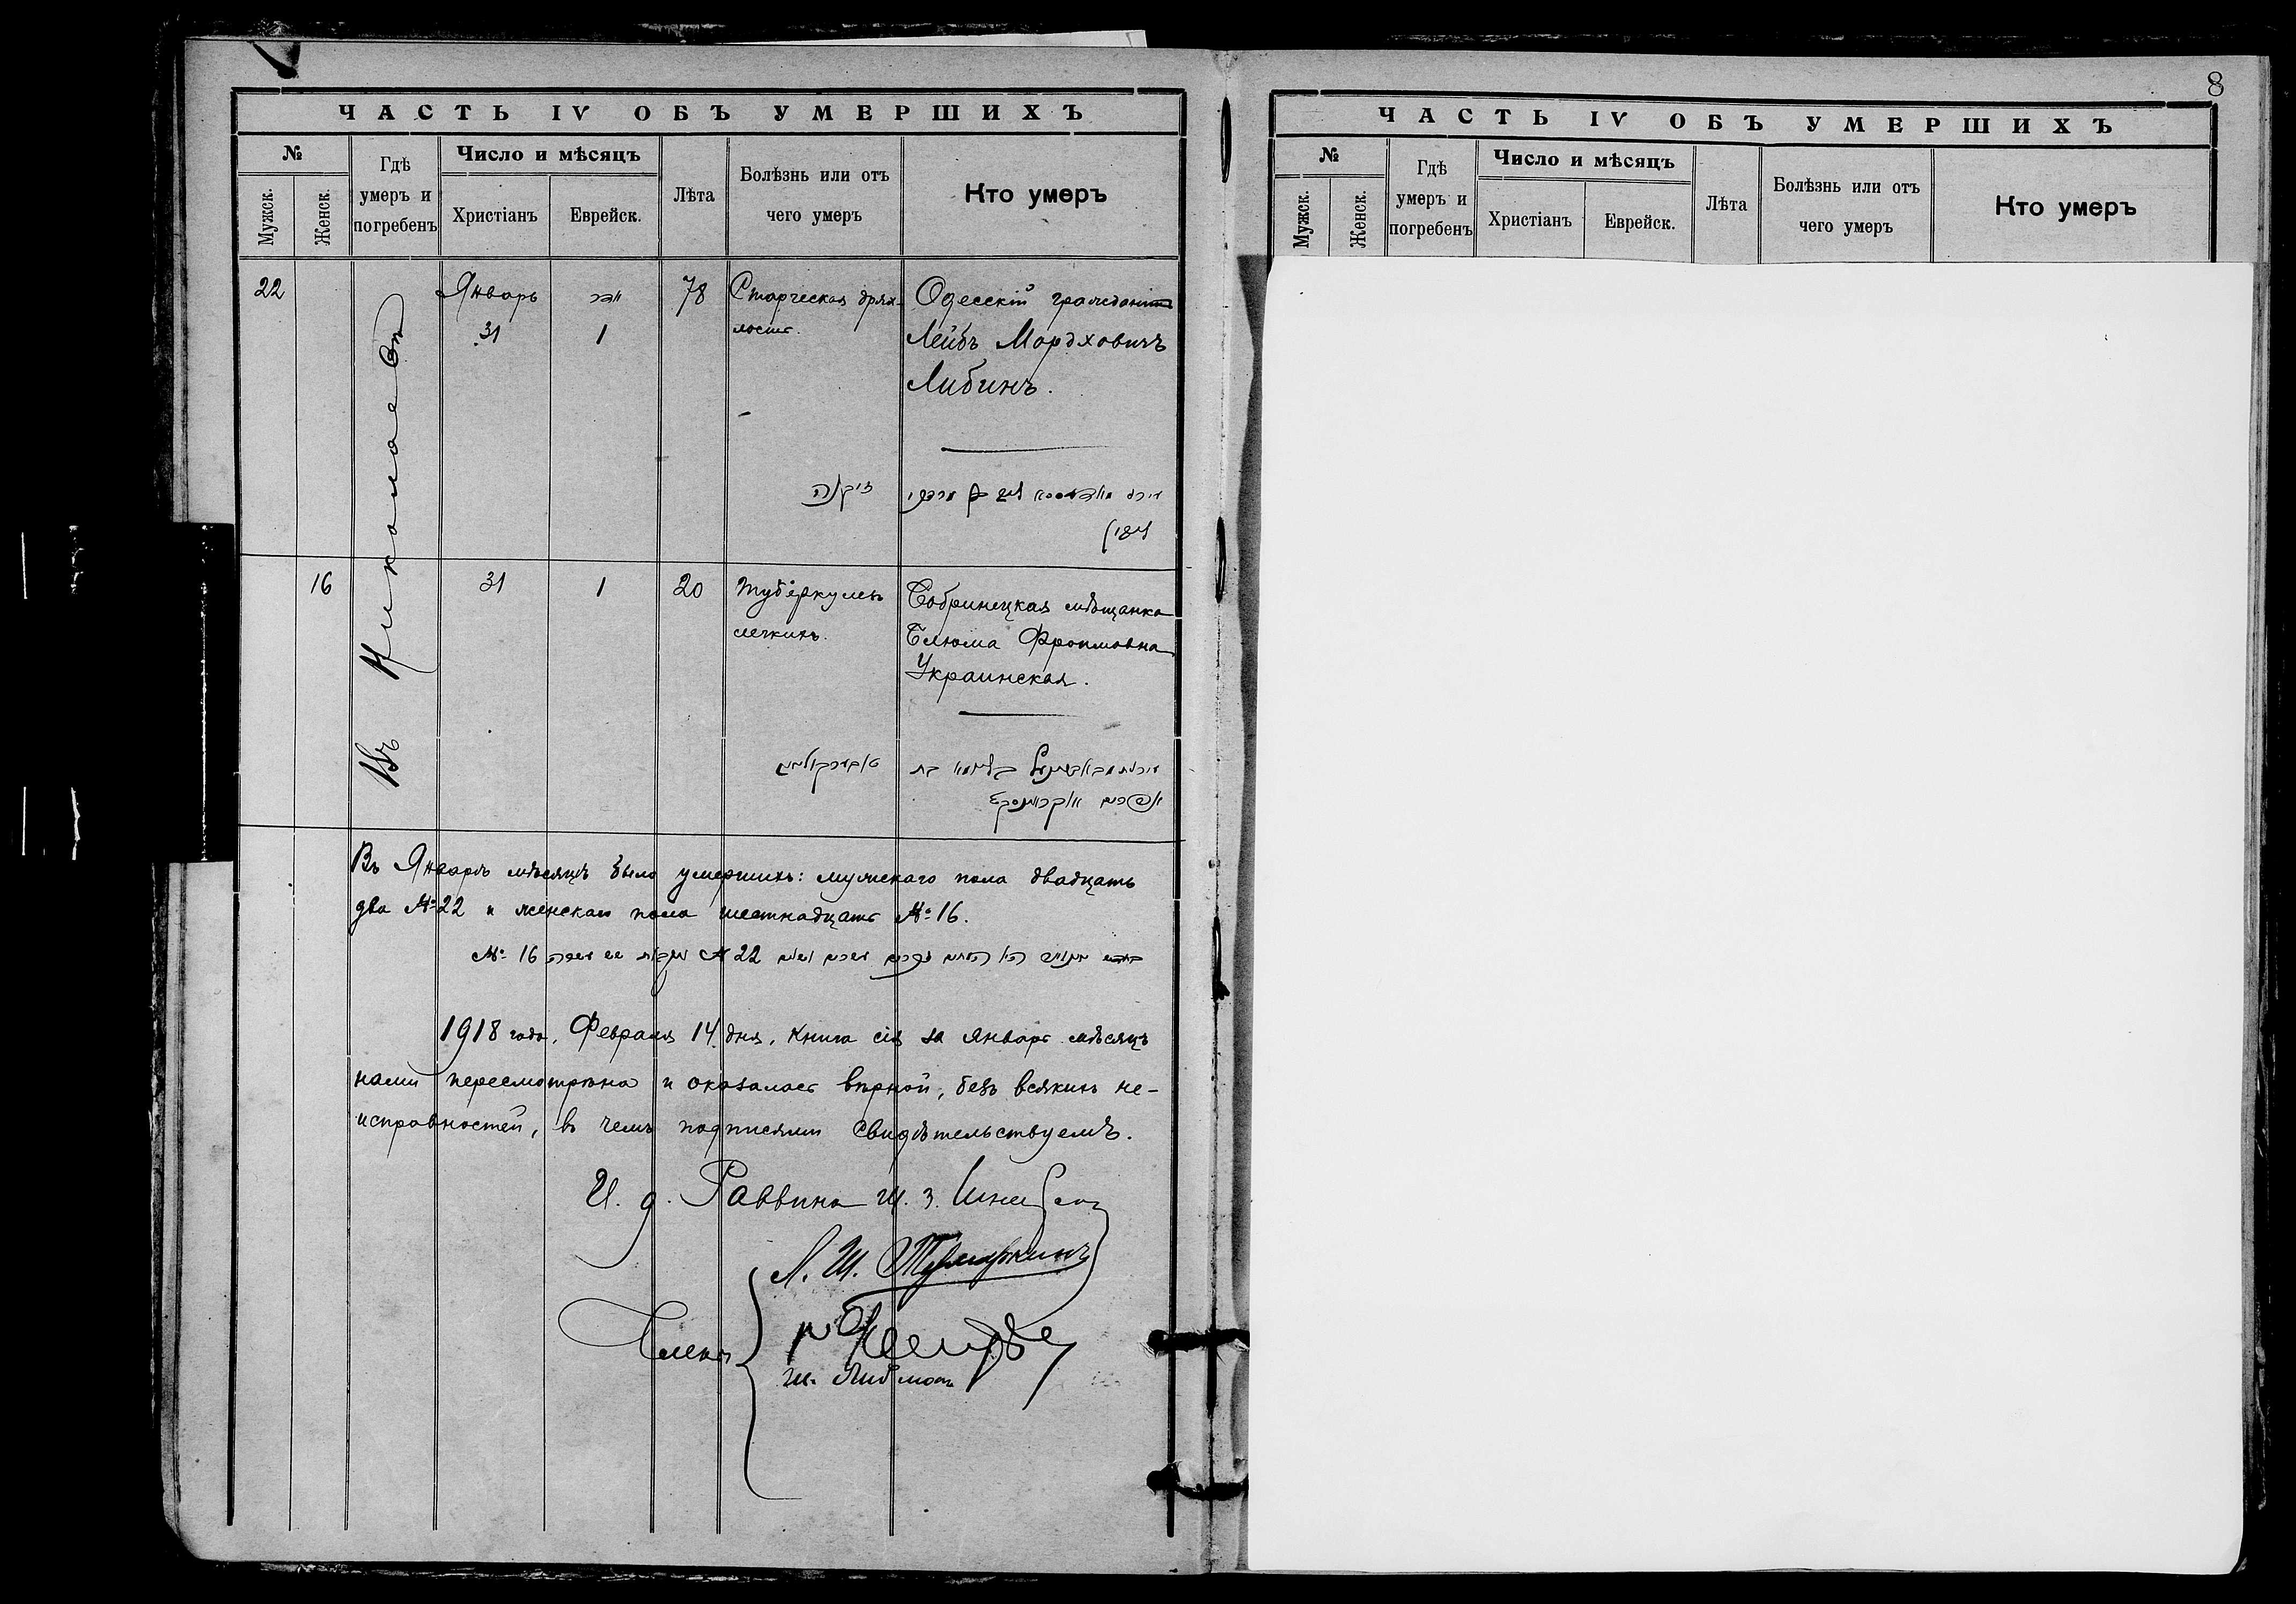 ЧАСТЬ IV ОБЪ УМЕРШИХЪ
№
Мужск.
Женск.
Гдѣ
умеръ и
погребенъ
Число и мѣсяцъ
Христіанъ
Еврейск.
Лѣта
Болѣзнь или отъ
чего умеръ
Кто умеръ
Въ Николаевѣ
22
Январь
31
1
78
Старческая дрях-
лость.
Одесскій гражданинъ
Лейбъ Мордховичъ
Либинъ.
זיקנה
16
31
1
20
Туберкулезъ
легкихъ.
Бобринецкая мѣщанка
Блюма Фроимовна
Украинская.
Въ Январѣ мѣсяцѣ было умершихъ: мужскаго пола двадцать
два № 22 и женскаго пола шестнадцать № 16.
№ 22
№ 16
1918 года, Февраля 14 дня, книга сія за Январь мѣсяцъ
нами пересмотрѣна и оказалась вѣрной, безъ всякихъ не-
исправностей, въ чемъ подписями свидѣтельствуемъ.
И. д. Раввина Ш. З.
Л. Ш.
Члены
Ш.
8
ЧАСТЬ IV ОБЪ УМЕРШИХЪ
№
Мужск.
Женск.
Гдѣ
умеръ и
погребенъ
Число и мѣсяцъ
Христіанъ
Еврейск.
Лѣта
Болѣзнь или отъ
чего умеръ
Кто умеръ